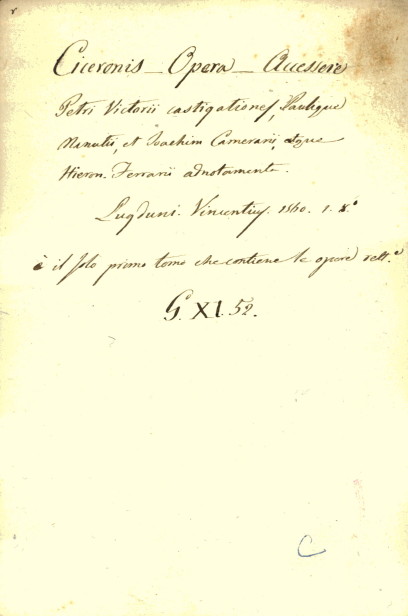 Ciceronis _ Opera _ Accessere
Petri Victorii castigationes, Paulique
Manutii, et Joachim Camerarii, atque
Hieron. Ferrarii adnotamenta.
Lugduni. Vincentius. 1560. 1. 8.º
è il solo primo tomo che contiene le opere rett.e
G. XI. 52.
C